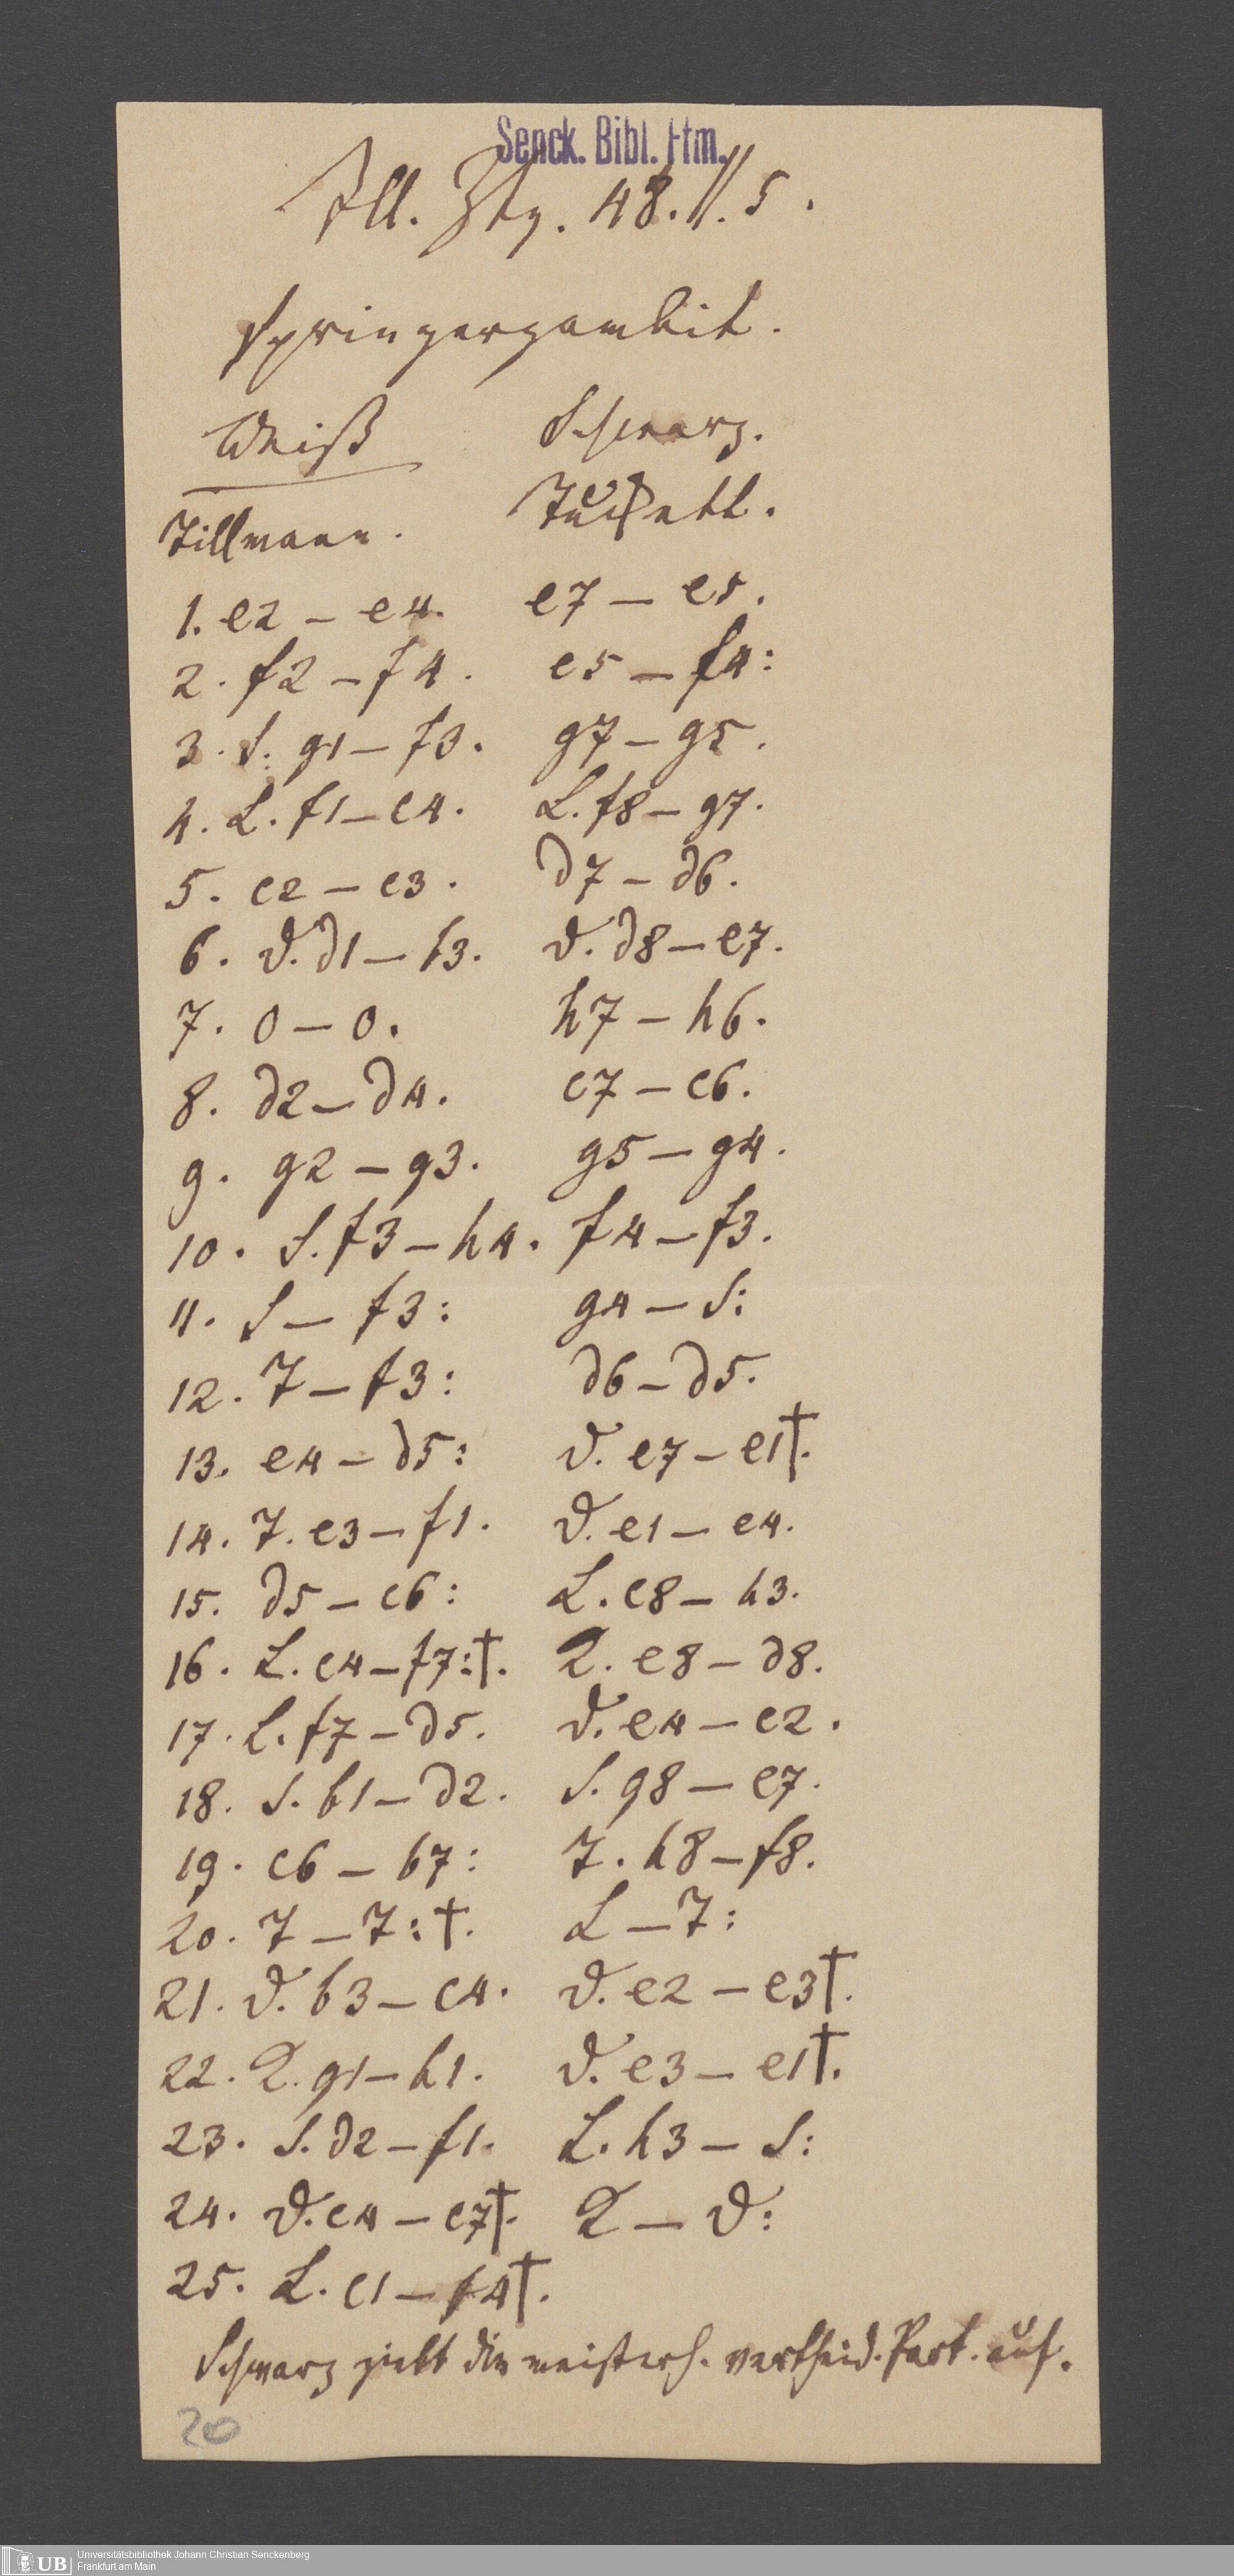 Senck. Bibl. Ffm.
Ill. Ztg. 48. II. 5.
Springergambit.
Weiß Schwarz.
Tillmann.
1. e2 – e4. e7 – e5.
2. f2 – f4. e5 – f4:
3. S. g1 – f3. g7 – g5.
4. L. f1 – c4. L. f8 – g7.
5. c2 – c3. d7 – d6.
6. D. d1 – b3. D. d8 – e7.
7. 0 – 0. h7 – h6.
8. d2 – d4. c7 – c6.
9. g2 – g3. g5 – g4.
10. S. f3 – h4. f4 – f3.
11. S – f3: g4 – S:
12. T – f3: d6 – d5.
13. e4 – d5: D. e7 – e1†.
14. T. e3 – f1. D. e1 – e4.
15. d5 – c6: L. c8 – h3.
16. L. c4 – f7:†. K. e8 – d8.
17. L. f7 – d5. D. e4 – e2.
18. S. b1 – d2. S. g8 – e7.
19. c6 – b7: T. h8 – f8.
20. T – T:†. L – T:
21. D. b3 – c4. D. e2 – e3†.
22. K. g1 – h1. D. e3 – e1†.
23. S. d2 – f1. L. h3 – S:
24. D. c4 – c7†. K – D:
25. L. c1 – f4†.
Schwarz giebt die meisterh. vertheid. Part. auf.
20
UB Universitätsbibliothek Johann Christian Senckenberg
Frankfurt am Main